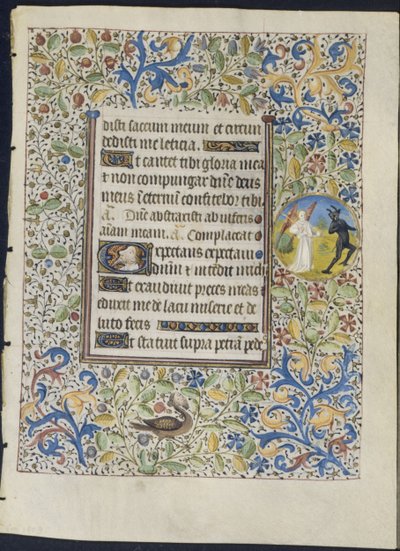 disti saccum meum et circum
dedisti me leticia.
Ut cantet tibi gloria mea
et non compungar dñe deus
meus in eternum confitebor tibi
A. Dñe abstraxisti ab inferis
aīam meam. A. Complaceat
Expectans expectaui
dnm et intedit michi
Et exaudiuit preces meas et
eduxit me de lacu miserie et de
luto fecis
Et statuit supra petrā pede